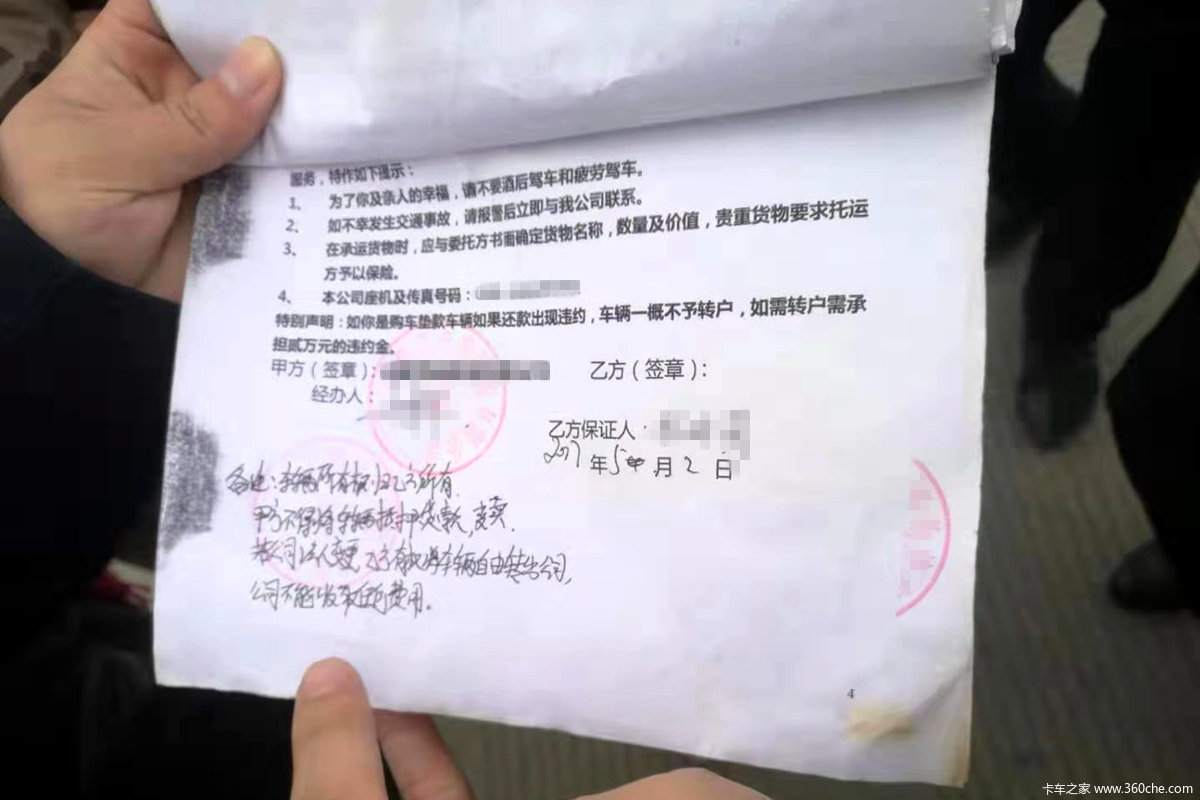 服务，特作如下提示：
1、 为了你及亲人的幸福，请不要酒后驾车和疲劳驾车。
2、 如不幸发生交通事故，请报警后立即与我公司联系。
3、 在承运货物时，应与委托方书面确定货物名称，数量及价值，贵重货物要求托运
方予以保险。
4、 本公司座机及传真号码：
特别声明：如你是购车垫款车辆如果还款出现违约，车辆一概不予转户，如需转户需承
担贰万元的违约金。
甲方（签章）： 乙方（签章）：
经办人：
乙方保证人：
2017年5月2日
备注：车辆所有权归乙方所有
甲方不得将车辆抵押贷款，变卖．
若公司法人变更 乙方有权将车辆自由转出公司，
公司不能收取任何费用．
4
卡车之家 www.360che.com